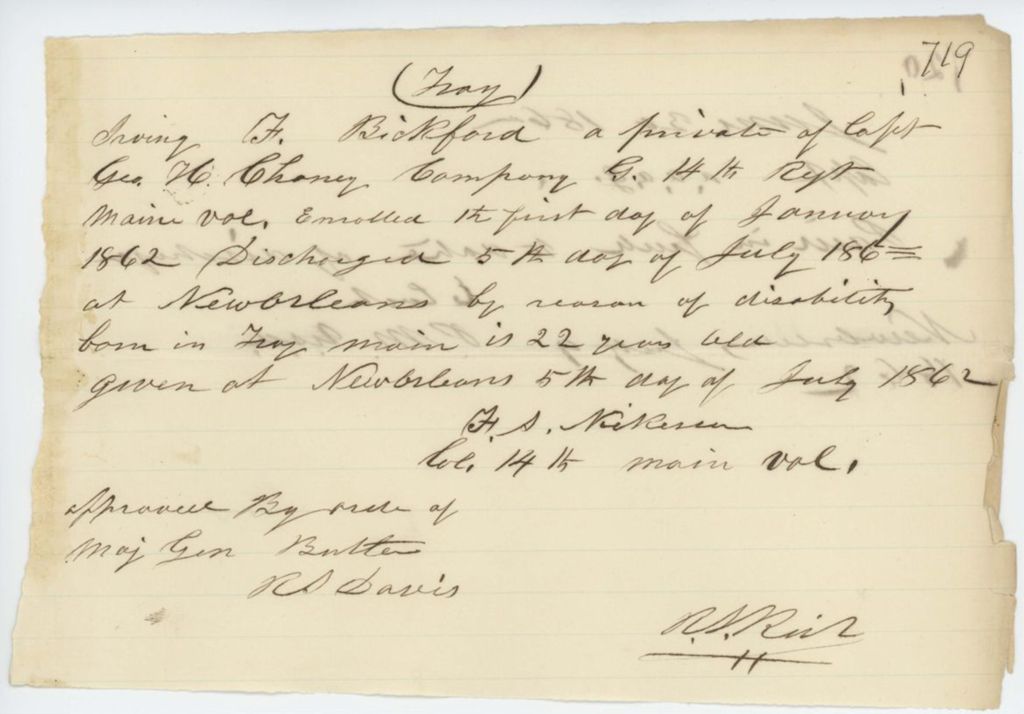 719
(Troy)
Irving F. Bickford a private of Capt
Geo. H. Chaney Company G. 14th Regt
Maine vol, Enrolled th first day of January
1862 Discharged 5th day of July 186=
at NewOrleans by reason of disability
born in Troy main is 22 years old
given at NewOrleans 5th day of July 1862
F. S. Nikerson
Col. 14th main vol.
approved By order of
Maj Gen Butler
R S Davis
R. S. Rich